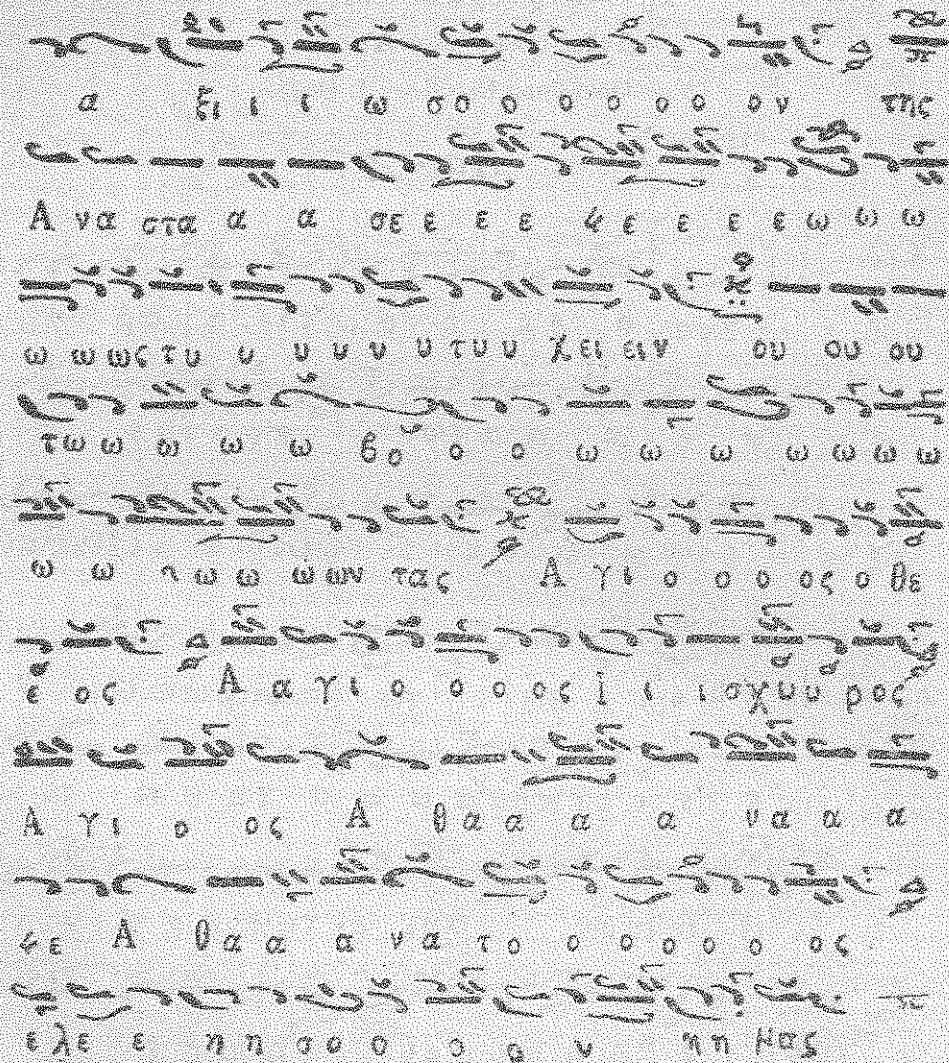 α ξι ι ι ω σο ο ο ο ο ο ον της
Α να στα α α σε ε ε ε ε ε ε ε ω ω ω
ω ω ως τυ υ υ υ υ υ τυ υ χει ειν ου ου ου
τω ω ω ω ω ω βο ο ο ω ω ω ω ω ω ω
ω ω ω ω ω ων τας Α γι ο ο ο ος ο θε
ε ος Α α γι ο ο ο ος Ι ι ι σχυ υ ρος
Α γι ο ος Α θα α α α α να α α α
Α θα α α α να το ο ο ο ο ο ος
ε λε ε η η σο ο ο ο ν η η μας